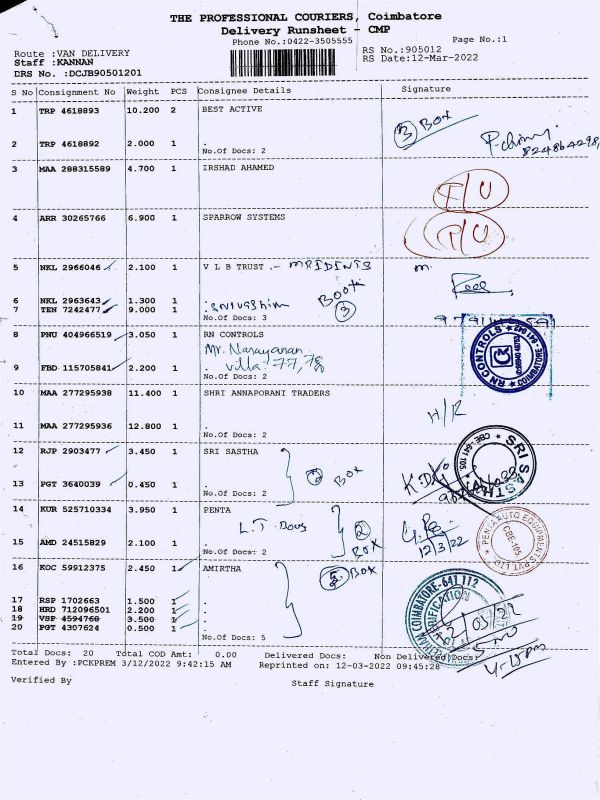 THE PROFESSIONAL COURIERS, Coimbatore
Delivery Runsheet - CMP
Phone No.:0422-3505555 Page No.:1
Route :VAN DELIVERY RS No.:905012
Staff :KANNAN RS Date:12-Mar-2022
DRS No. :DCJB90501201
S No Consignment No Weight PCS Consignee Details Signature
1 TRP 4618893 10.200 2 BEST ACTIVE
3 Box
2 TRP 4618892 2.000 1 .
No.Of Docs: 2
3 MAA 288315589 4.700 1 IRSHAD AHAMED
4 ARR 30265766 6.900 1 SPARROW SYSTEMS
5 NKL 2966046 2.100 1 V L B TRUST
6 NKL 2963643 1.300 1 .
7 TEN 7242477 9.000 1 .
No.Of Docs: 3
3
8 PNU 404966519 3.050 1 RN CONTROLS
Mr. Narayanan
villa 77, 78
RN CONTROLS
COIMBATORE
9 FBD 115705841 2.200 1 .
No.Of Docs: 2
10 MAA 277295938 11.400 1 SHRI ANNAPORANI TRADERS
H/R
11 MAA 277295936 12.800 1 .
No.Of Docs: 2
12 RJP 2903477 3.450 1 SRI SASTHA
2 Box
SRI SASTHA
CBE - 641 105
13 PGT 3640039 0.450 1 .
No.Of Docs: 2
14 KUR 525710334 3.950 1 PENTA
L.T. Dous
2 Box
12/3/22
PENTA AUTO EQUIPMENTS PVT LTD
CBE-105
15 AMD 24515829 2.100 1 .
No.Of Docs: 2
16 KOC 59912375 2.450 1 AMIRTHA
5 Box
COIMBATORE-641 112
17 RSP 1702663 1.500 1 .
18 HRD 712096501 2.200 1 .
19 VSP 4594768 3.500 1 .
20 PGT 4307624 0.500 1 .
No.Of Docs: 5
Total Docs: 20 Total COD Amt: 0.00 Delivered Docs: Non Delivered Docs:
Entered By :PCKPREM 3/12/2022 9:42:15 AM Reprinted on: 12-03-2022 09:45:28
Verified By Staff Signature